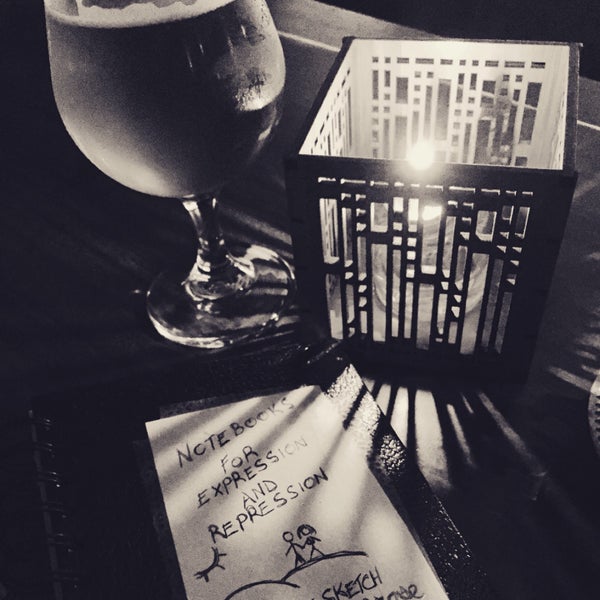 NOTEBOOKS
FOR
EXPRESSION
AND
REPRESSION
SKETCH